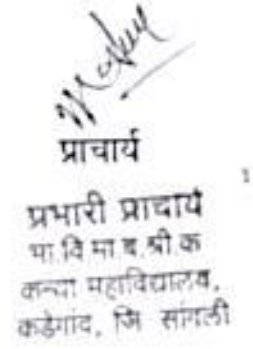 प्राचार्य
प्रभारी प्राचार्य
भा.वि मा ब.श्री.क
कन्या महाविद्यालय,
कडेगांव, जि सांगली